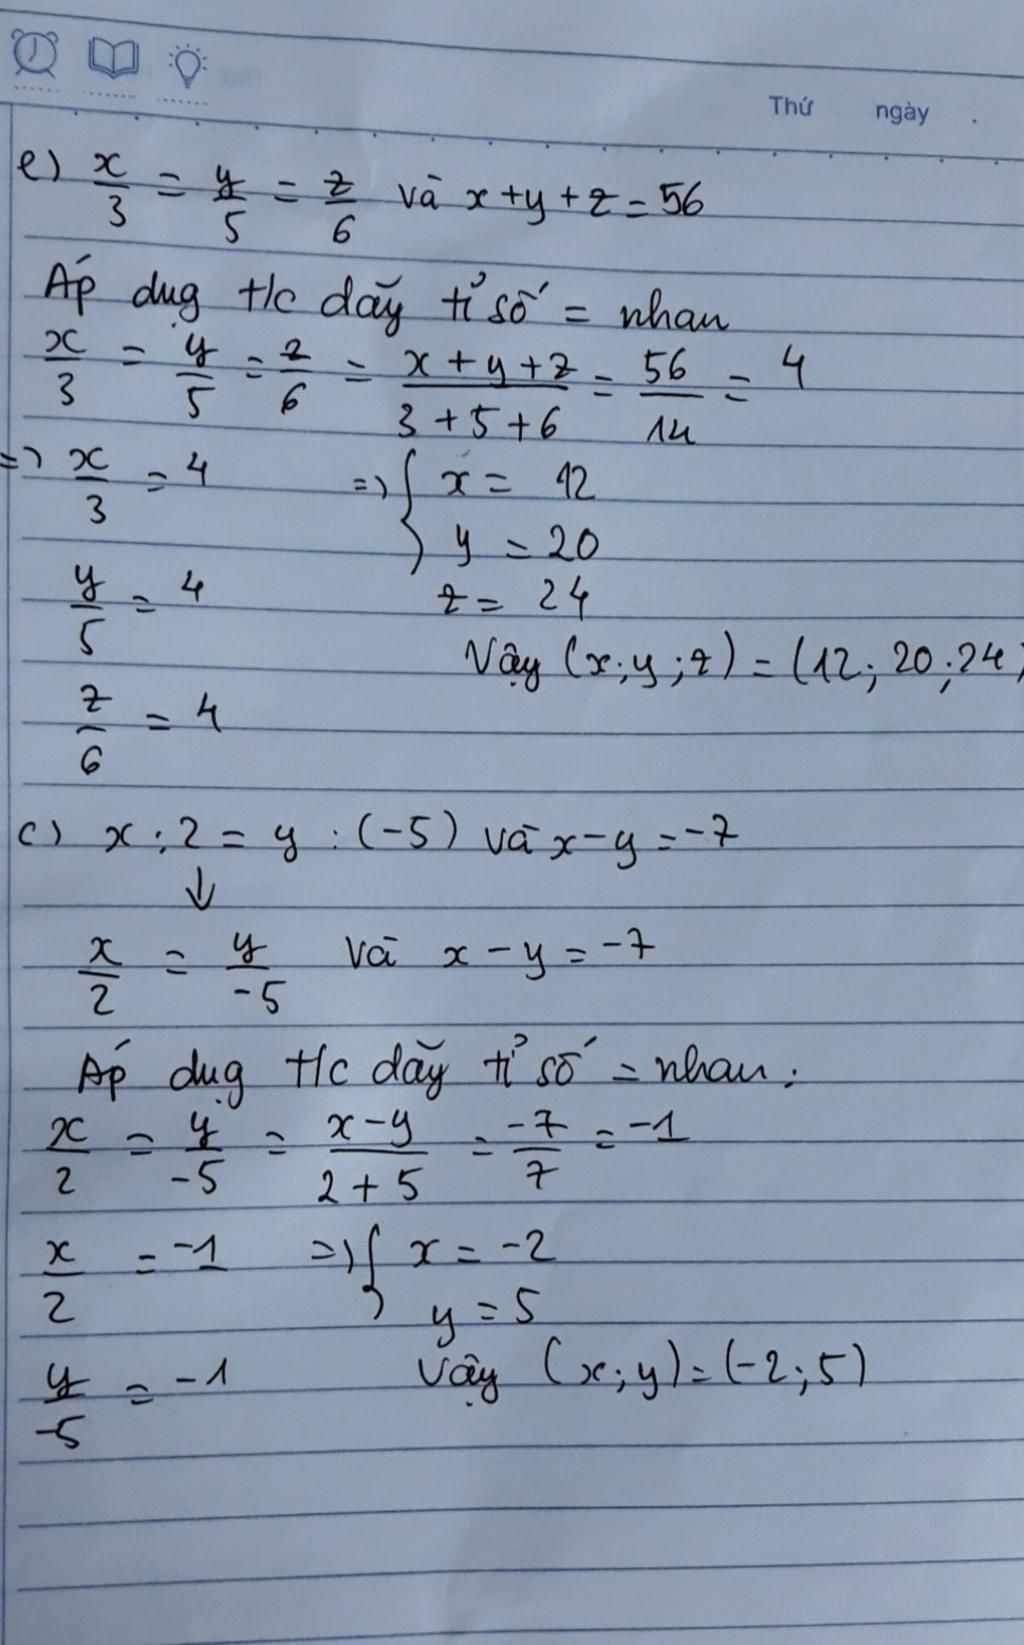 Thứ ngày .
e) x/3 = y/5 = z/6 và x+y+z=56
Áp dụg t/c dãy tỉ số = nhau
x/3 = y/5 = z/6 = (x+y+z)/(3+5+6) = 56/14 = 4
=> x/3 = 4 => { x = 12
y = 20
y/5 = 4 z = 24
Vậy (x;y;z) = (12; 20;24)
z/6 = 4
c) x:2 = y:(-5) và x-y=-7
↓
x/2 = y/-5 và x-y=-7
Áp dụg t/c dãy tỉ số = nhau:
x/2 = y/-5 = (x-y)/(2+5) = -7/7 = -1
x/2 = -1 => { x = -2
y = 5
y/-5 = -1 Vậy (x;y)=(-2;5)